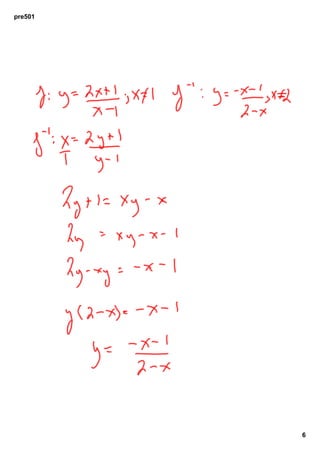 pre501
f: y = 2x+1 / x-1 ; x≠1 f⁻¹: y = -x-1 / 2-x ; x≠2
f⁻¹: x/1 = 2y+1 / y-1
2y+1 = xy-x
2y = xy-x-1
2y-xy = -x-1
y(2-x) = -x-1
y = -x-1 / 2-x
6